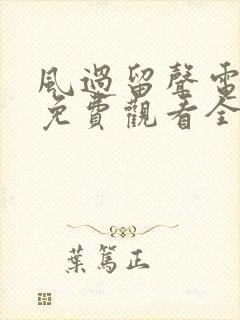 風過留聲電
免費觀看全
葉篤正